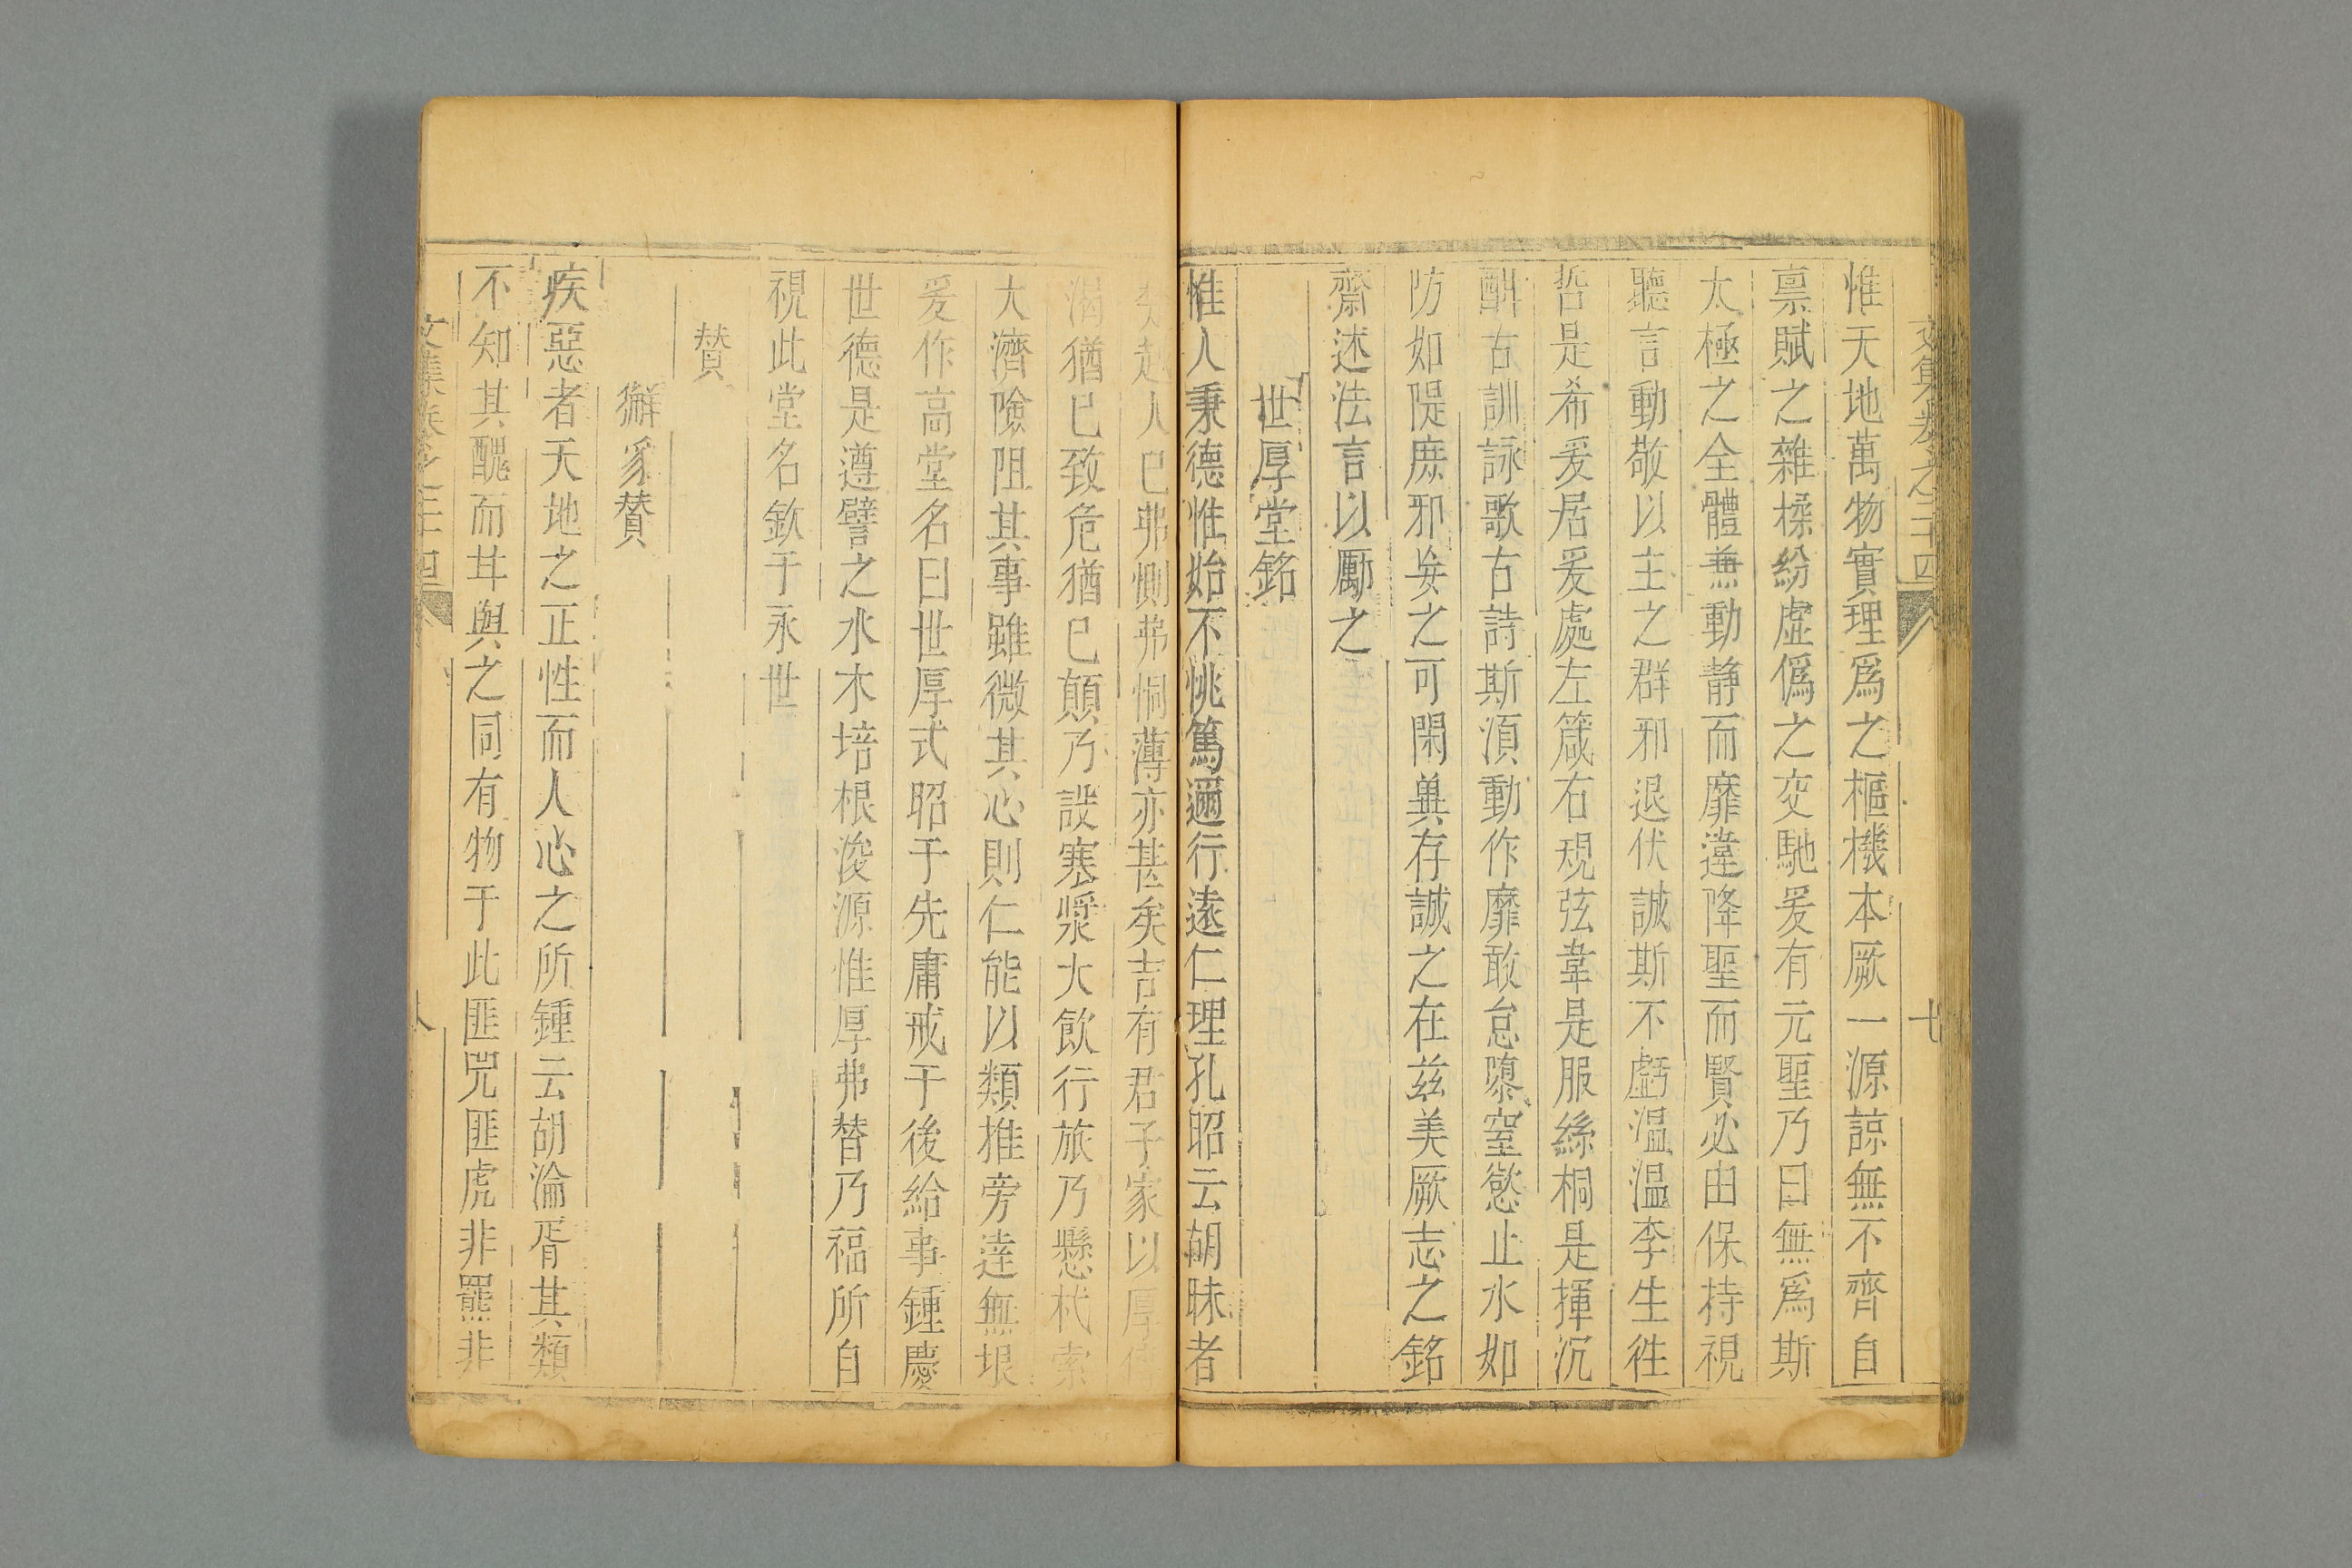 文集卷之二十四
七
惟天地萬物實理爲之樞機本厥一源諒無不齊自
禀賦之雜糅紛虛僞之交馳爰有元聖乃曰無爲斯
太極之全體無動静而靡違降聖而賢必由保持視
聽言動敬以主之群邪退伏誠斯不虧温温李生徃
哲是希爰居爰處左箴右規弦韋是服絲桐是揮沉
酣古訓詠歌古詩斯湏動作靡敢怠隳窒慾止水如
防如隄庶邪妄之可閑兾存誠之在兹美厥志之銘
齋述法言以勵之
世厚堂銘
惟人秉德惟始不恌篤邇行遠仁理孔昭云胡昧者
人已弗惻弗恫薄亦甚矣吉有君子家以厚
渴猶已致危猶已顛乃設塞漿大飲行旅乃懸杙索
大濟險阻其事雖微其心則仁能以類推旁逹無垠
爰作高堂名曰世厚式昭于先庸戒于後給事鍾慶
世德是遵譬之水木培根浚源惟厚弗替乃福所自
視此堂名欽于永世
贊
獬豸贊
疾惡者天地之正性而人心之所鍾云胡淪胥其類
不知其醜而㘴與之同有物于此匪兕匪虎非羆非
文集卷之二十四
八